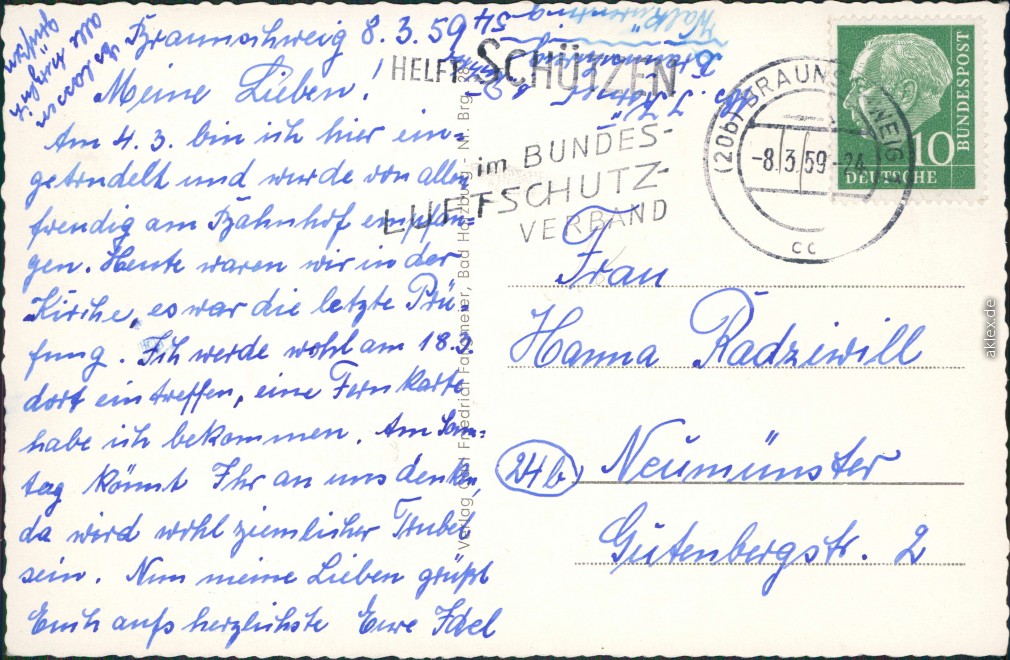 Braunschweig 8.3.59
Meine Lieben!
Am 4.3. bin ich hier ein=
getrudelt und wurde von allen
freudig am Bahnhof empfan=
gen. Heute waren wir in der
Kirche, es war die letzte Prü=
fung. Ich werde wohl am 18.3
dort eintreffen, eine Fernkarte
habe ich bekommen. Am Sonn=
tag könnt Ihr an uns denken,
da wird wohl ziemlicher Trubel
sein. Nun meine Lieben grüßt
Euch aufs herzlichste Eure
HELFT SCHÜTZEN
im BUNDES-
LUFTSCHUTZ-
VERBAND
(20b) BRAUNSCHWEIG
-8.3.59-24
cc
10
DEUTSCHE
BUNDESPOST
Frau
Hanna Radziwill
24b Neumünster
Gutenbergstr. 2
Verlag Friedrich Bad Harzburg - Nr. Brg.
aklex.de